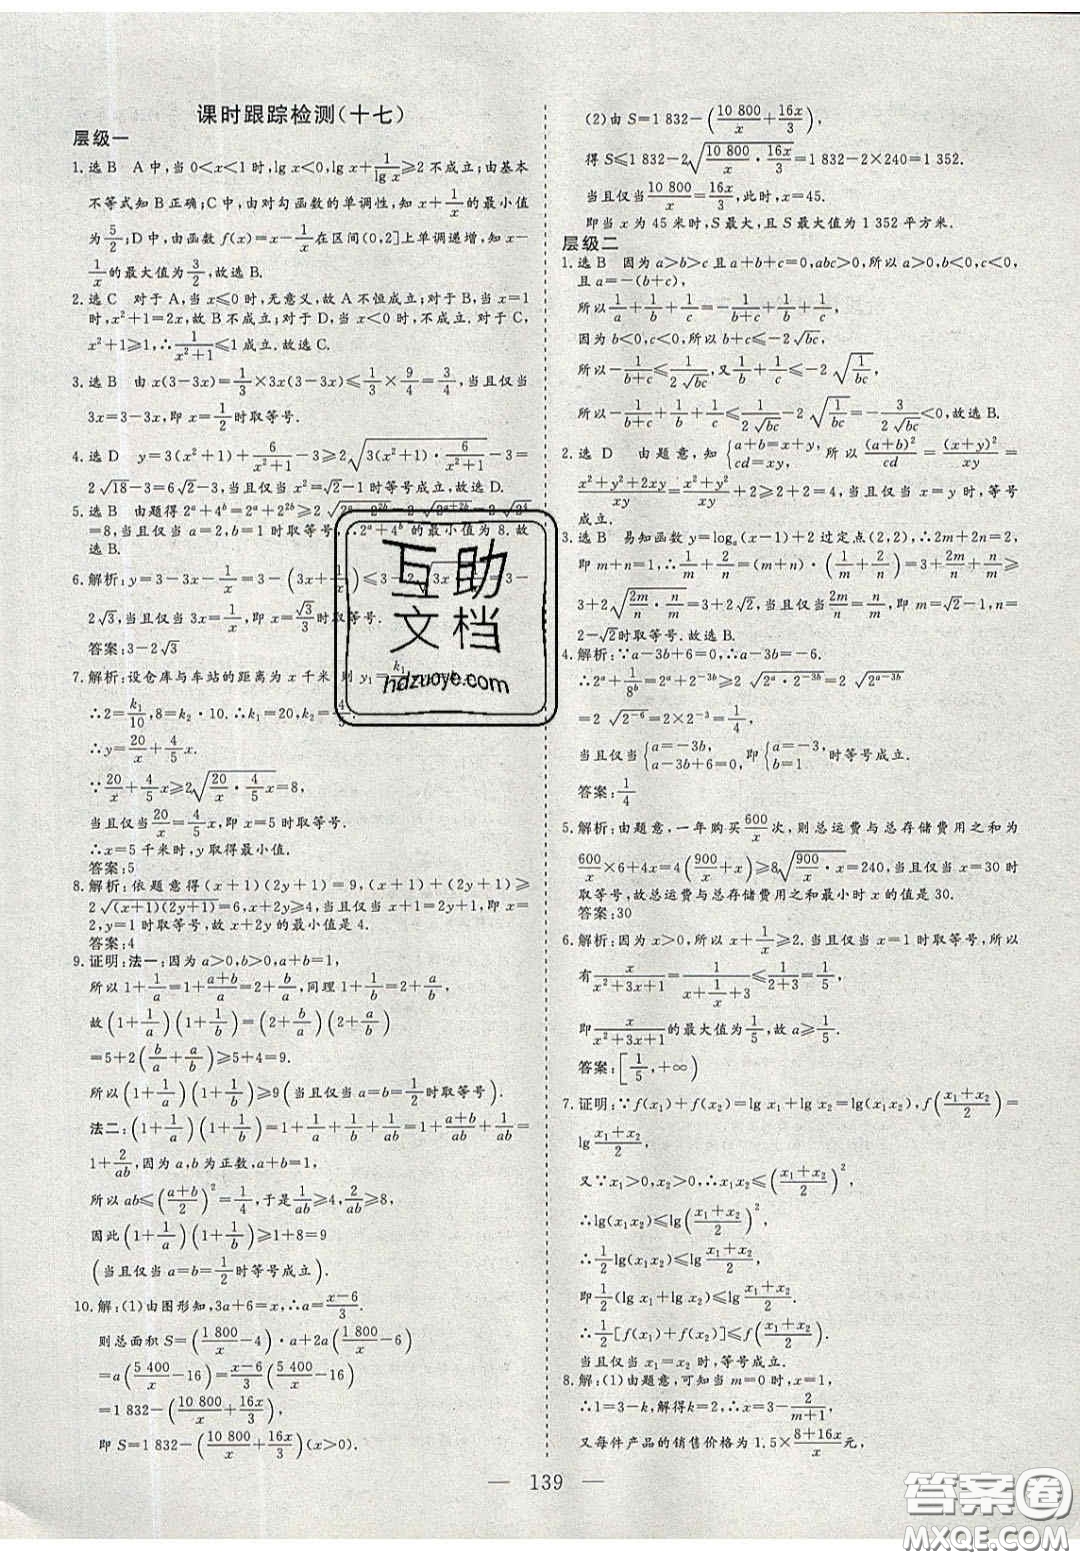 课时跟踪检测(十七)
层级一
1.选B A中,当0<x<1时,lg x<0,lg x+1/lg x≥2不成立;由基本
不等式知B正确;C中,由对勾函数的单调性,知x+1/x的最小值
为5/2;D中,由函数f(x)=x-1/x在区间(0,2]上单调递增,知x-
1/x的最大值为3/2,故选B.
2.选C 对于A,当x≤0时,无意义,故A不恒成立;对于B,当x=1
时,x²+1=2x,故B不成立;对于D,当x=0时,不成立.对于C,
x²+1≥1,∴1/(x²+1)≤1成立.故选C.
3.选B 由x(3-3x)=1/3×3x(3-3x)≤1/3×9/4=3/4,当且仅当
3x=3-3x,即x=1/2时取等号.
4.选D y=3(x²+1)+6/(x²+1)-3≥2√(3(x²+1)·6/(x²+1))-3=
2√18-3=6√2-3,当且仅当x²=√2-1时等号成立,故选D.
5.选B 由题得2^a+4^b=2^a+2^(2b)≥2
=8,当且仅当a=2,b=1时取等号,∴2^a+4^b的最小值为8.故
选B.
6.解析:y=3-3x-1/x=3-(3x+1/x)≤3-
2√3,当且仅当3x=1/x,即x=√3/3时取等号.
答案:3-2√3
7.解析:设仓库与车站的距离为x千米,则y₁=
∴2=k₁/10,8=k₂·10.∴k₁=20,k₂=4/5.
∴y=20/x+4/5 x.
∵20/x+4/5 x≥2√(20/x·4/5 x)=8,
当且仅当20/x=4/5 x,即x=5时取等号.
∴x=5千米时,y取得最小值.
答案:5
8.解析:依题意得(x+1)(2y+1)=9,(x+1)+(2y+1)≥
2√((x+1)(2y+1))=6,x+2y≥4,当且仅当x+1=2y+1,即x=
2,y=1时取等号,故x+2y的最小值是4.
答案:4
9.证明:法一:因为a>0,b>0,a+b=1,
所以1+1/a=1+(a+b)/a=2+b/a,同理1+1/b=2+a/b,
故(1+1/a)(1+1/b)=(2+b/a)(2+a/b)
=5+2(b/a+a/b)≥5+4=9.
所以(1+1/a)(1+1/b)≥9(当且仅当a=b=1/2时取等号).
法二:(1+1/a)(1+1/b)=1+1/a+1/b+1/ab=1+(a+b)/ab+1/ab=
1+2/ab,因为a,b为正数,a+b=1,
所以ab≤((a+b)/2)²=1/4,于是1/ab≥4,2/ab≥8,
因此(1+1/a)(1+1/b)≥1+8=9
(当且仅当a=b=1/2时等号成立).
10.解:(1)由图形知,3a+6=x,∴a=(x-6)/3.
则总面积S=(1 800/x-4)·a+2a(1 800/x-6)
=a(5 400/x-16)=(x-6)/3(5 400/x-16)
=1 832-(10 800/x+16x/3),
即S=1 832-(10 800/x+16x/3)(x>0).
(2)由S=1 832-(10 800/x+16x/3),
得S≤1 832-2√(10 800/x·16x/3)=1 832-2×240=1 352.
当且仅当10 800/x=16x/3,此时,x=45.
即当x为45米时,S最大,且S最大值为1 352平方米.
层级二
1.选B 因为a>b>c且a+b+c=0,abc>0,所以a>0,b<0,c<0,
且a=-(b+c),
所以1/a+1/b+1/c=-1/(b+c)+1/b+1/c,
因为b<0,c<0,所以b+c≤-2√bc,
所以-1/(b+c)≤1/(2√bc),又1/b+1/c≤-2√(1/bc),
所以-1/(b+c)+1/b+1/c≤1/(2√bc)-2√(1/bc)=-3/(2√bc)<0,故选B.
2.选D 由题意,知{a+b=x+y, cd=xy,所以(a+b)²/cd=(x+y)²/xy=
(x²+y²+2xy)/xy=(x²+y²)/xy+2≥2+2=4,当且仅当x=y时,等号
成立.
3.选B 易知函数y=logₐ(x-1)+2过定点(2,2),∴2m+2n=2,
即m+n=1,∴1/m+2/n=(m+n)·(1/m+2/n)=3+2m/n+n/m≥
3+2√(2m/n·n/m)=3+2√2,当且仅当2m/n=n/m,即m=√2-1,n=
2-√2时取等号.故选B.
4.解析:∵a-3b+6=0,∴a-3b=-6.
∴2^a+1/8^b=2^a+2^(-3b)≥2√(2^a·2^(-3b))=2√(2^(a-3b))
=2√(2^(-6))=2×2^(-3)=1/4,
当且仅当{a=-3b, a-3b+6=0, 即{a=-3, b=1时等号成立.
答案:1/4
5.解析:由题意,一年购买600/x次,则总运费与总存储费用之和为
600/x×6+4x=4(900/x+x)≥8√(900/x·x)=240,当且仅当x=30时
取等号,故总运费与总存储费用之和最小时x的值是30.
答案:30
6.解析:因为x>0,所以x+1/x≥2.当且仅当x=1时取等号,所以
有x/(x²+3x+1)=1/(x+1/x+3)≤1/(2+3)=1/5,
即x/(x²+3x+1)的最大值为1/5,故a≥1/5.
答案:[1/5,+∞)
7.证明:∵f(x₁)+f(x₂)=lg x₁+lg x₂=lg(x₁x₂),f((x₁+x₂)/2)=
lg (x₁+x₂)/2,
又∵x₁>0,x₂>0,∴x₁x₂≤((x₁+x₂)/2)²,
∴lg(x₁x₂)≤lg((x₁+x₂)/2)²,
∴1/2 lg(x₁x₂)≤lg (x₁+x₂)/2,
即1/2(lg x₁+lg x₂)≤lg (x₁+x₂)/2.
∴1/2[f(x₁)+f(x₂)]≤f((x₁+x₂)/2).
当且仅当x₁=x₂时,等号成立.
8.解:(1)由题意,可知当m=0时,x=1,
∴1=3-k,解得k=2,∴x=3-2/(m+1),
又每件产品的销售价格为1.5×(8+16x)/x元,
— 139 —
互助
文档
hdzuoye.com
答案圈
MXQE.COM